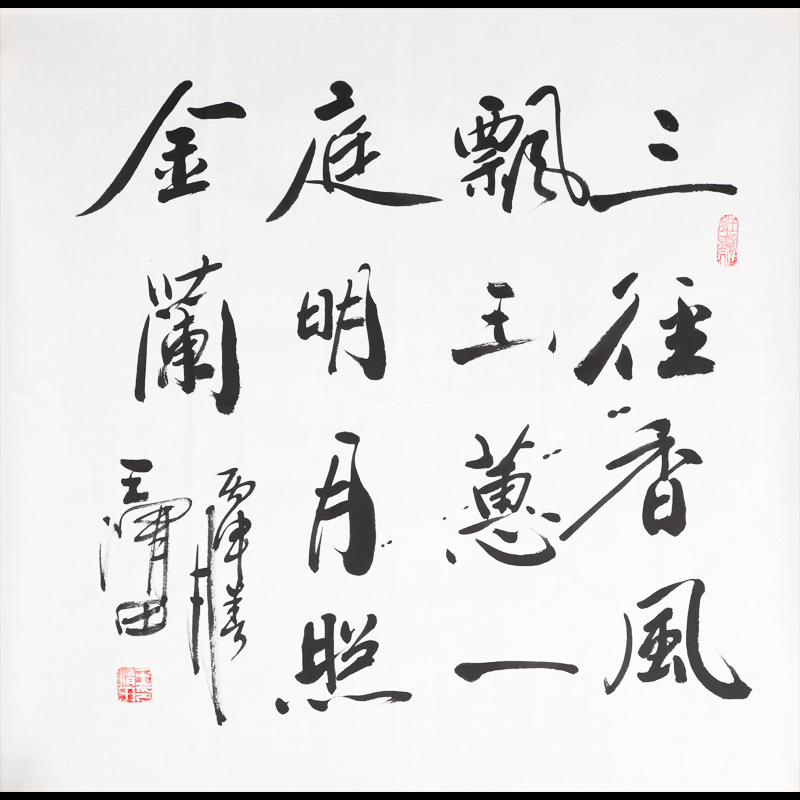 三徑香風
飄玉蕙一
庭明月照
金蘭
丙申
王